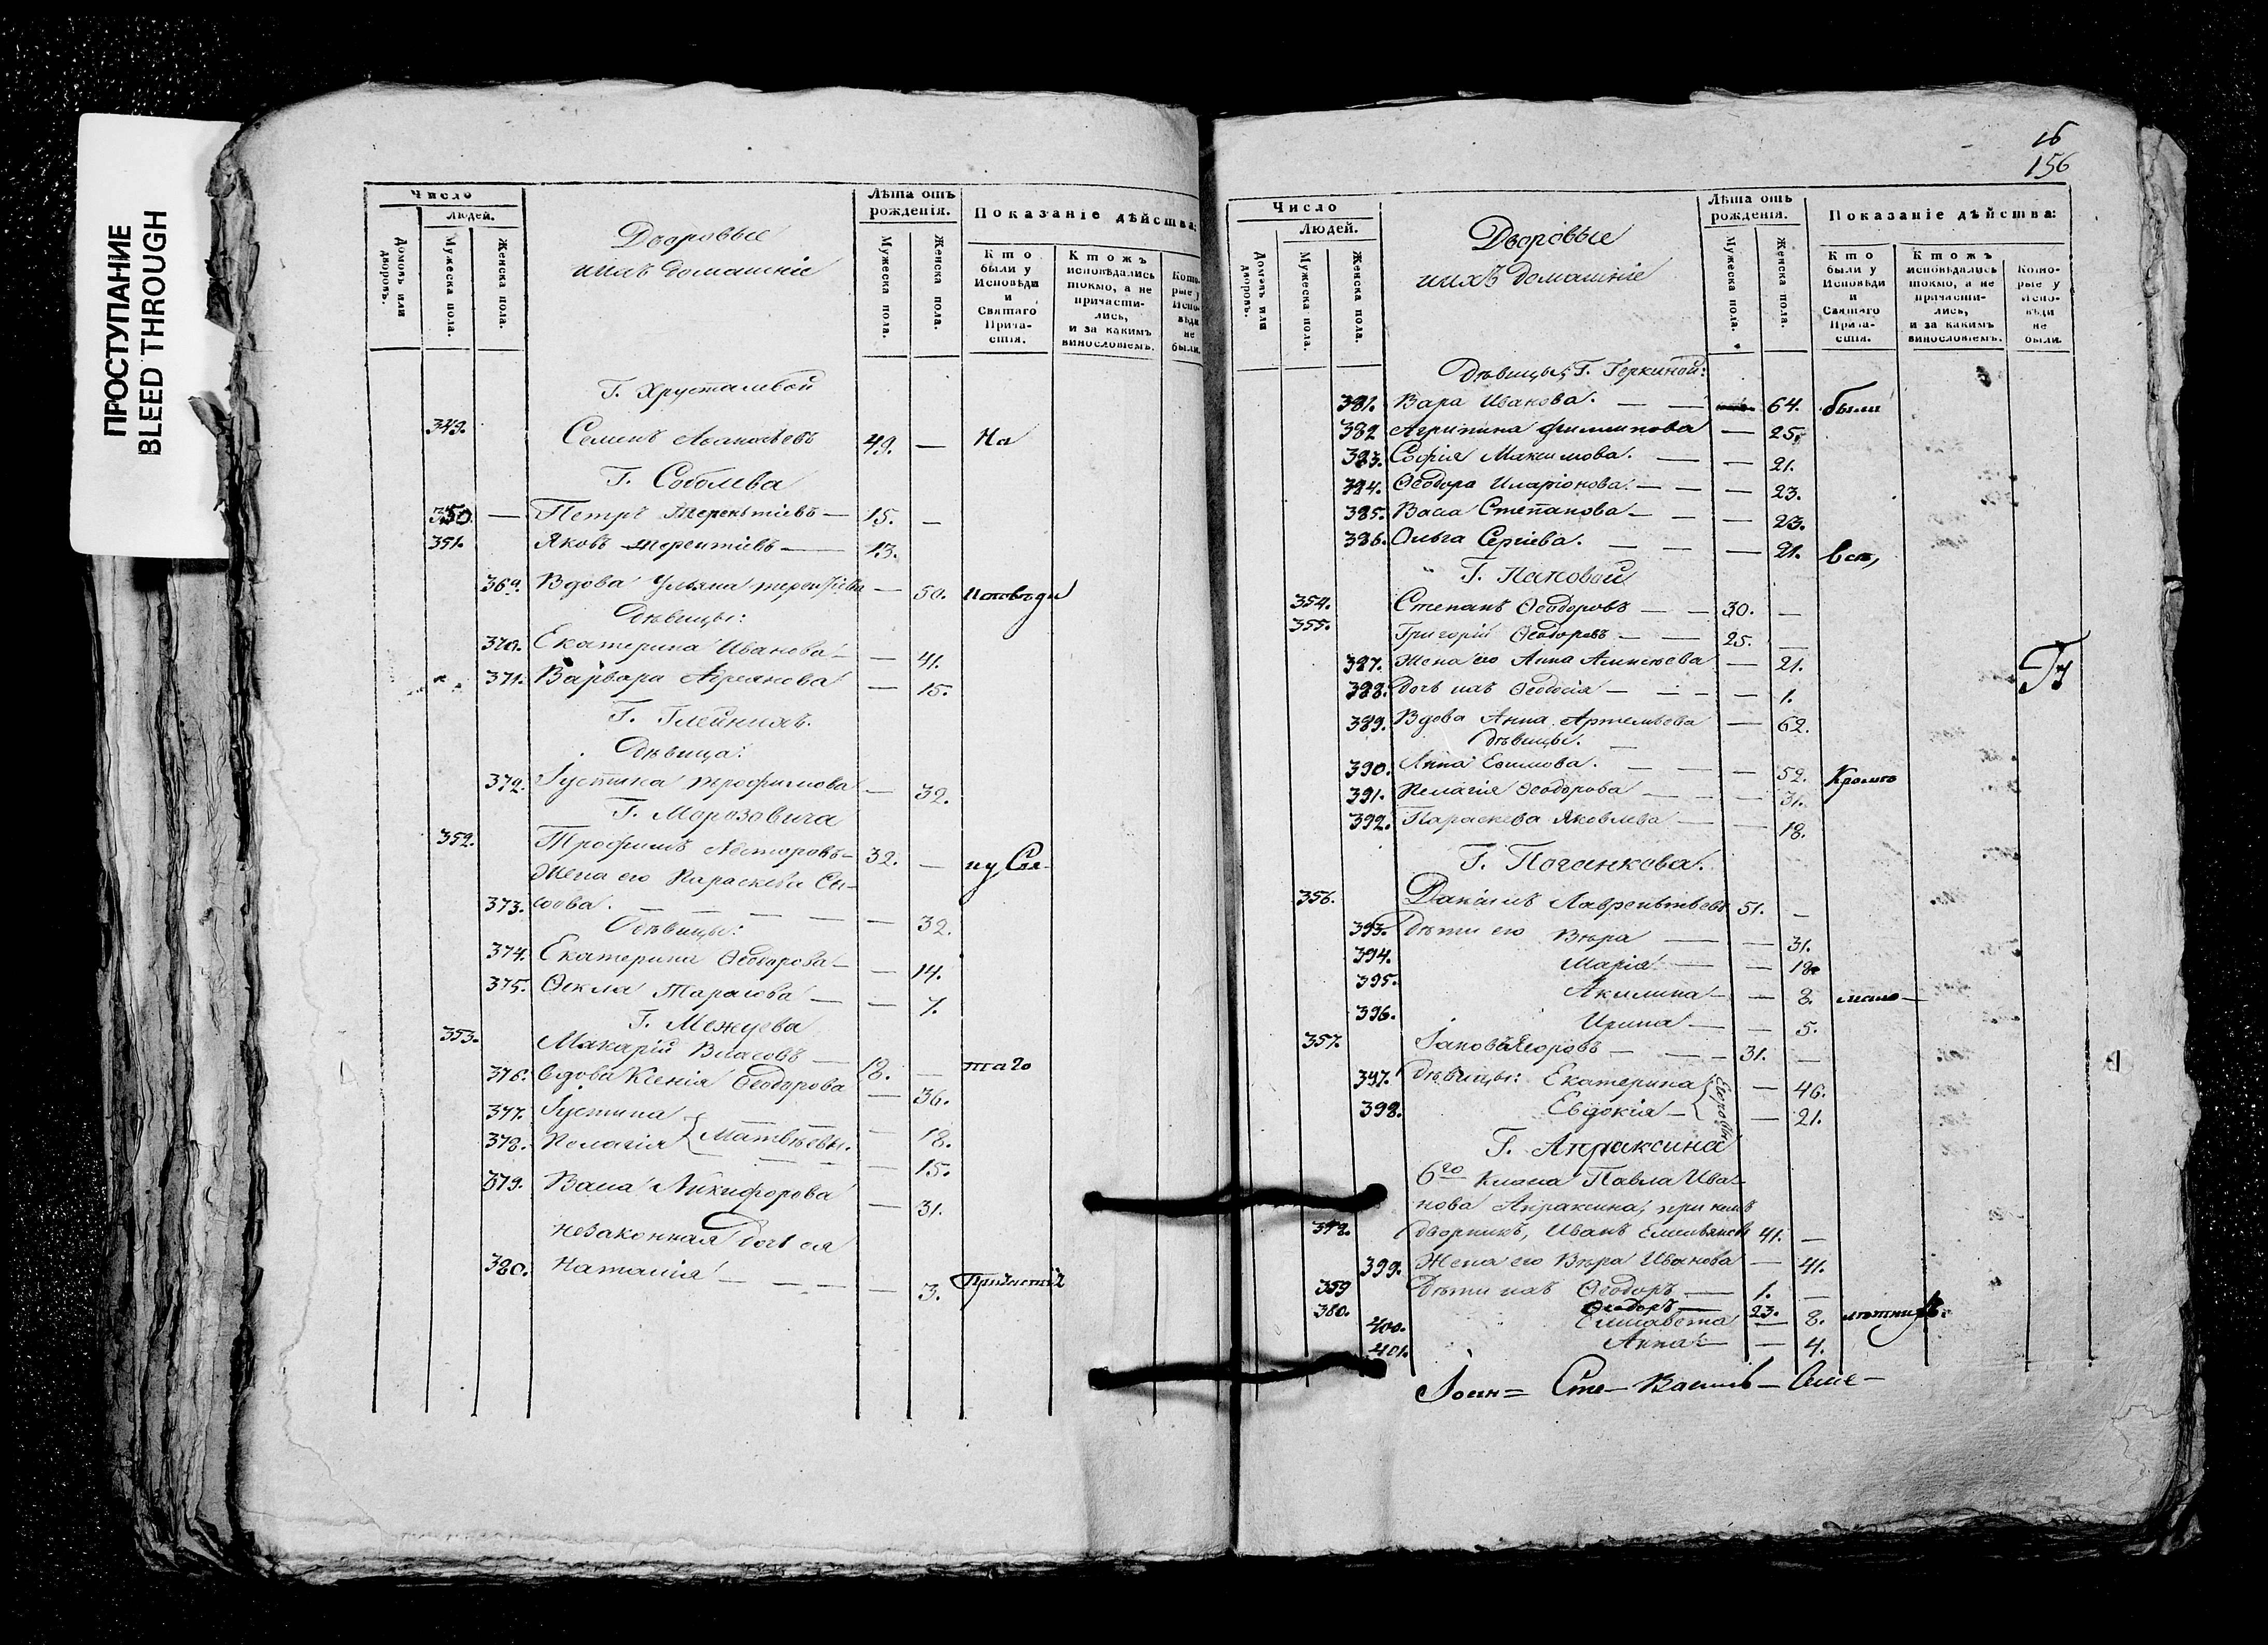 ПРОСТУПАНИЕ
BLEED THROUGH
Число
Людей.
Домовъ или дворовъ.
Мужеска пола.
Женска пола.
Дворовые
ихъ домашніе
Лѣта отъ рожденія.
Мужеска пола.
Женска пола.
Показаніе дѣйства:
Кто были у Исповѣди и Святаго Причастія.
Ктожъ исповѣдались токмо, а не причастились, и за какимъ винословіемъ.
Которые у Исповѣди не были.
Г. Хрусталевой
349. Семенъ 49. — На
Г. Соболева
350. — Петръ Терентіевъ — 15. —
351. Яковъ Терентіевъ — 13.
369. Вдова Ульяна Терентіева — 50. исповѣди
Дѣвицы:
370. Екатерина Иванова — — 41.
371. Варвара — 15.
Г.
Дѣвица:
372. Іустина Трофимова — 32.
Г. Морозовича
352. Трофимъ Несторовъ — 32. — и у Свя-
Жена его Параскева Сы-
373. соева. — — — — — 32.
Дѣвицы:
374. Екатерина Ѳеодорова — — 14.
375. Ѳекла Тарасова — — 7.
Г. Межуева
353. Макарій Власовъ — 18. — таго
376. Вдова Ксенія Ѳеодорова — 36.
377. Іустина — 18.
378. Пелагія { Матвѣевы. — 15.
379. Васа Никифорова — 31.
незаконная дочь ея
380. Наталія — — — — 3. Причастія
16
156
Число
Людей.
Домовъ или дворовъ.
Мужеска пола.
Женска пола.
Дворовые
ихъ домашніе
Лѣта отъ рожденія.
Мужеска пола.
Женска пола.
Показаніе дѣйства:
Кто были у Исповѣди и Святаго Причастія.
Ктожъ исповѣдались токмо, а не причастились, и за какимъ винословіемъ.
Которые у Исповѣди не были.
Дѣвицы, Г. Геркиной:
381. Вара Иванова. — — 64. были
382. Агрипина Филипова — 25.
383. Софія Максимова. — — 21.
384. Ѳеодора Иларіонова. — — 23.
385. Васа Степанова — — — 23.
386. Ольга Сергіева. — — — 21. всѣ,
Г. Пановой
354. Степанъ Ѳеодоровъ — — 30. —
355. Григорій Ѳеодоровъ — — 25. —
387. Жена его Анна — 21.
388. дочь ихъ Ѳеодосія — — — — 1.
389. Вдова Анна Артемьева — 62.
дѣвицы. —
390. Анна Ефимова. — — — 52. Кромѣ
391. Пелагія Ѳеодорова — — — 31.
392. Параскева Яковлева — — 18.
Г. Поганкова.
356. Даніилъ Лаврентьевъ 51. —
393. Дѣти его Вѣра — — 31.
394. Марія — — 18.
395. Акилина — — 8. мало-
396. Ирина — — 5.
357. Іаковъ Егоровъ — — — 31. —
397. дѣвицы: Екатерина — 46.
398. Евдокія — { Егоровы — 21.
Г. Апраксина
6го класа Павла Ива-
нова Апраксина, при немъ
дворникъ, Иванъ Емельяновъ 41. —
399. Жена его Вѣра Иванова — 41.
359 Дѣти ихъ Ѳеодоръ — 1. —
380. Ѳеодоръ — 23.
400. Елисавета — 8. лѣтнихъ.
401. Анна — — 4.